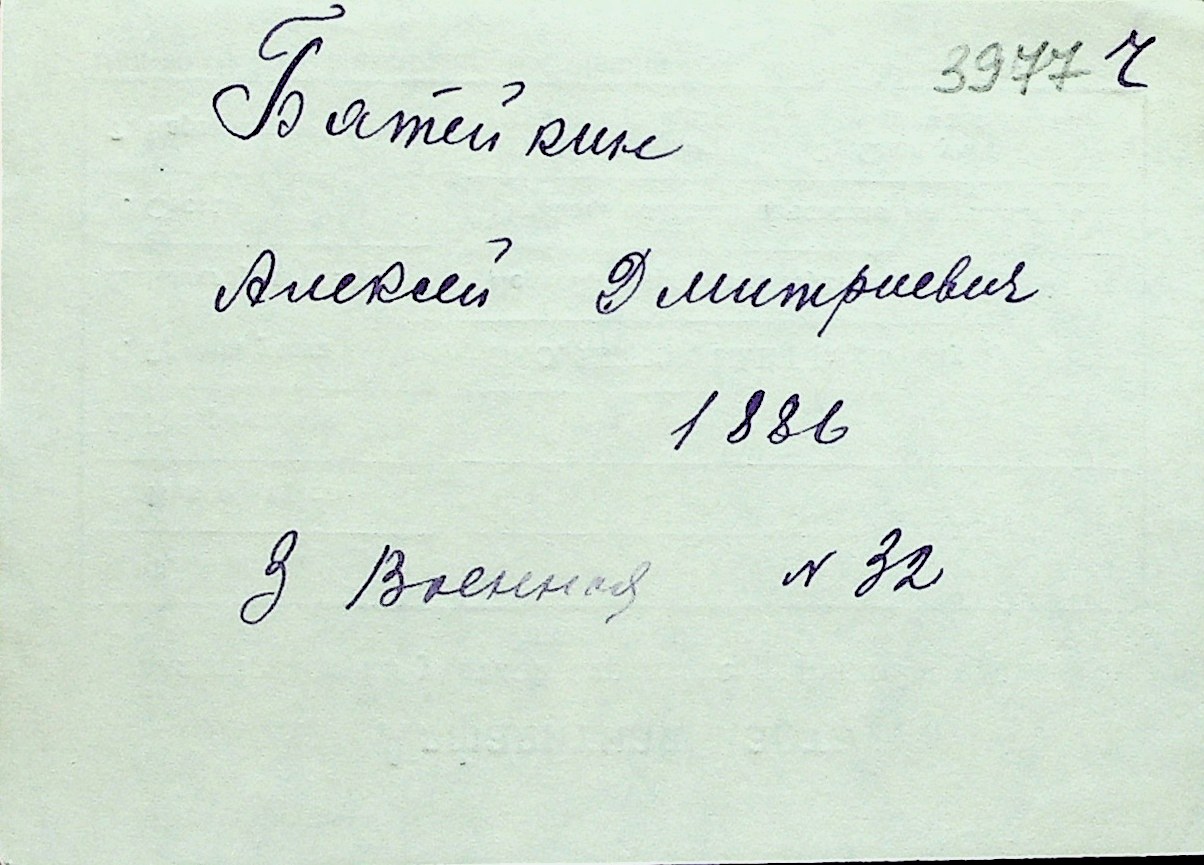 3977 ч
Батейкин
Алексей Дмитриевич
1886
3 Военная N 32